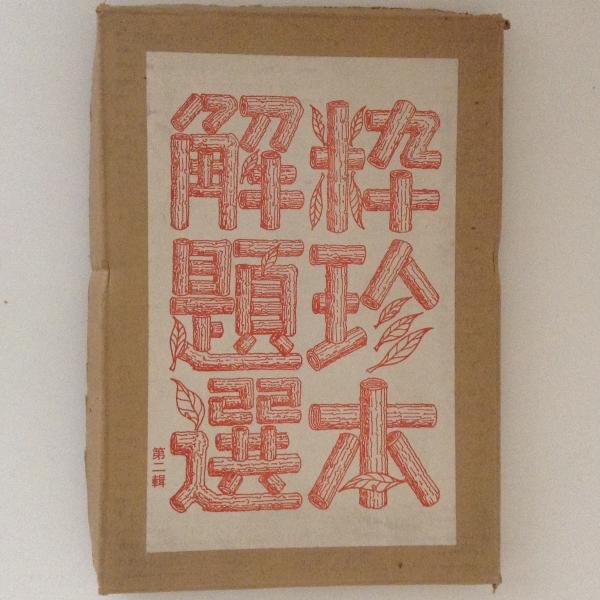 粋珍本
解題選
第二輯